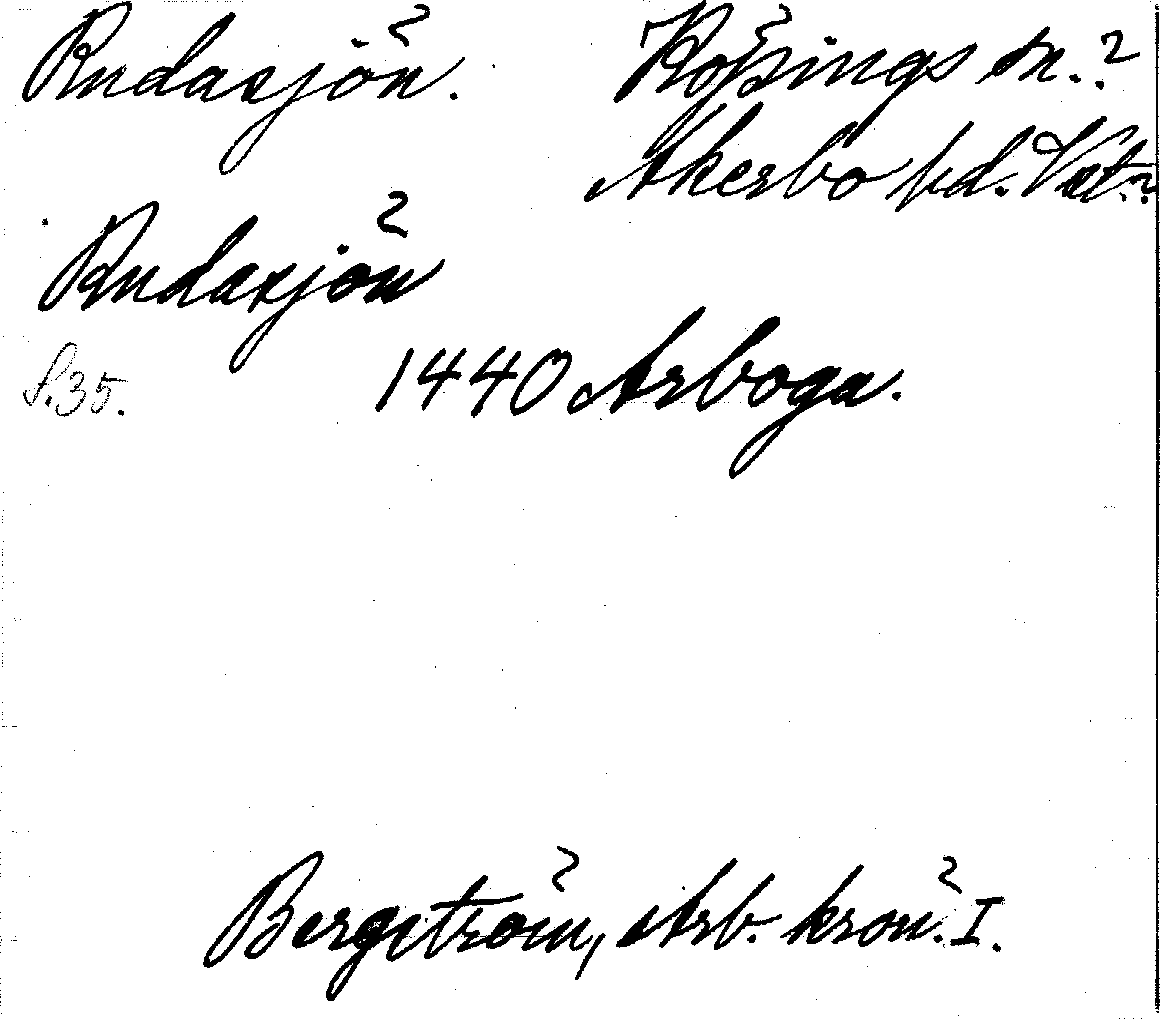 Rudasjön. Köpings sn.?
Åkerbo hd. Väst.?
Rudasjön
S.35. 1440 Arboga.
Bergström, Arb. krön. I.